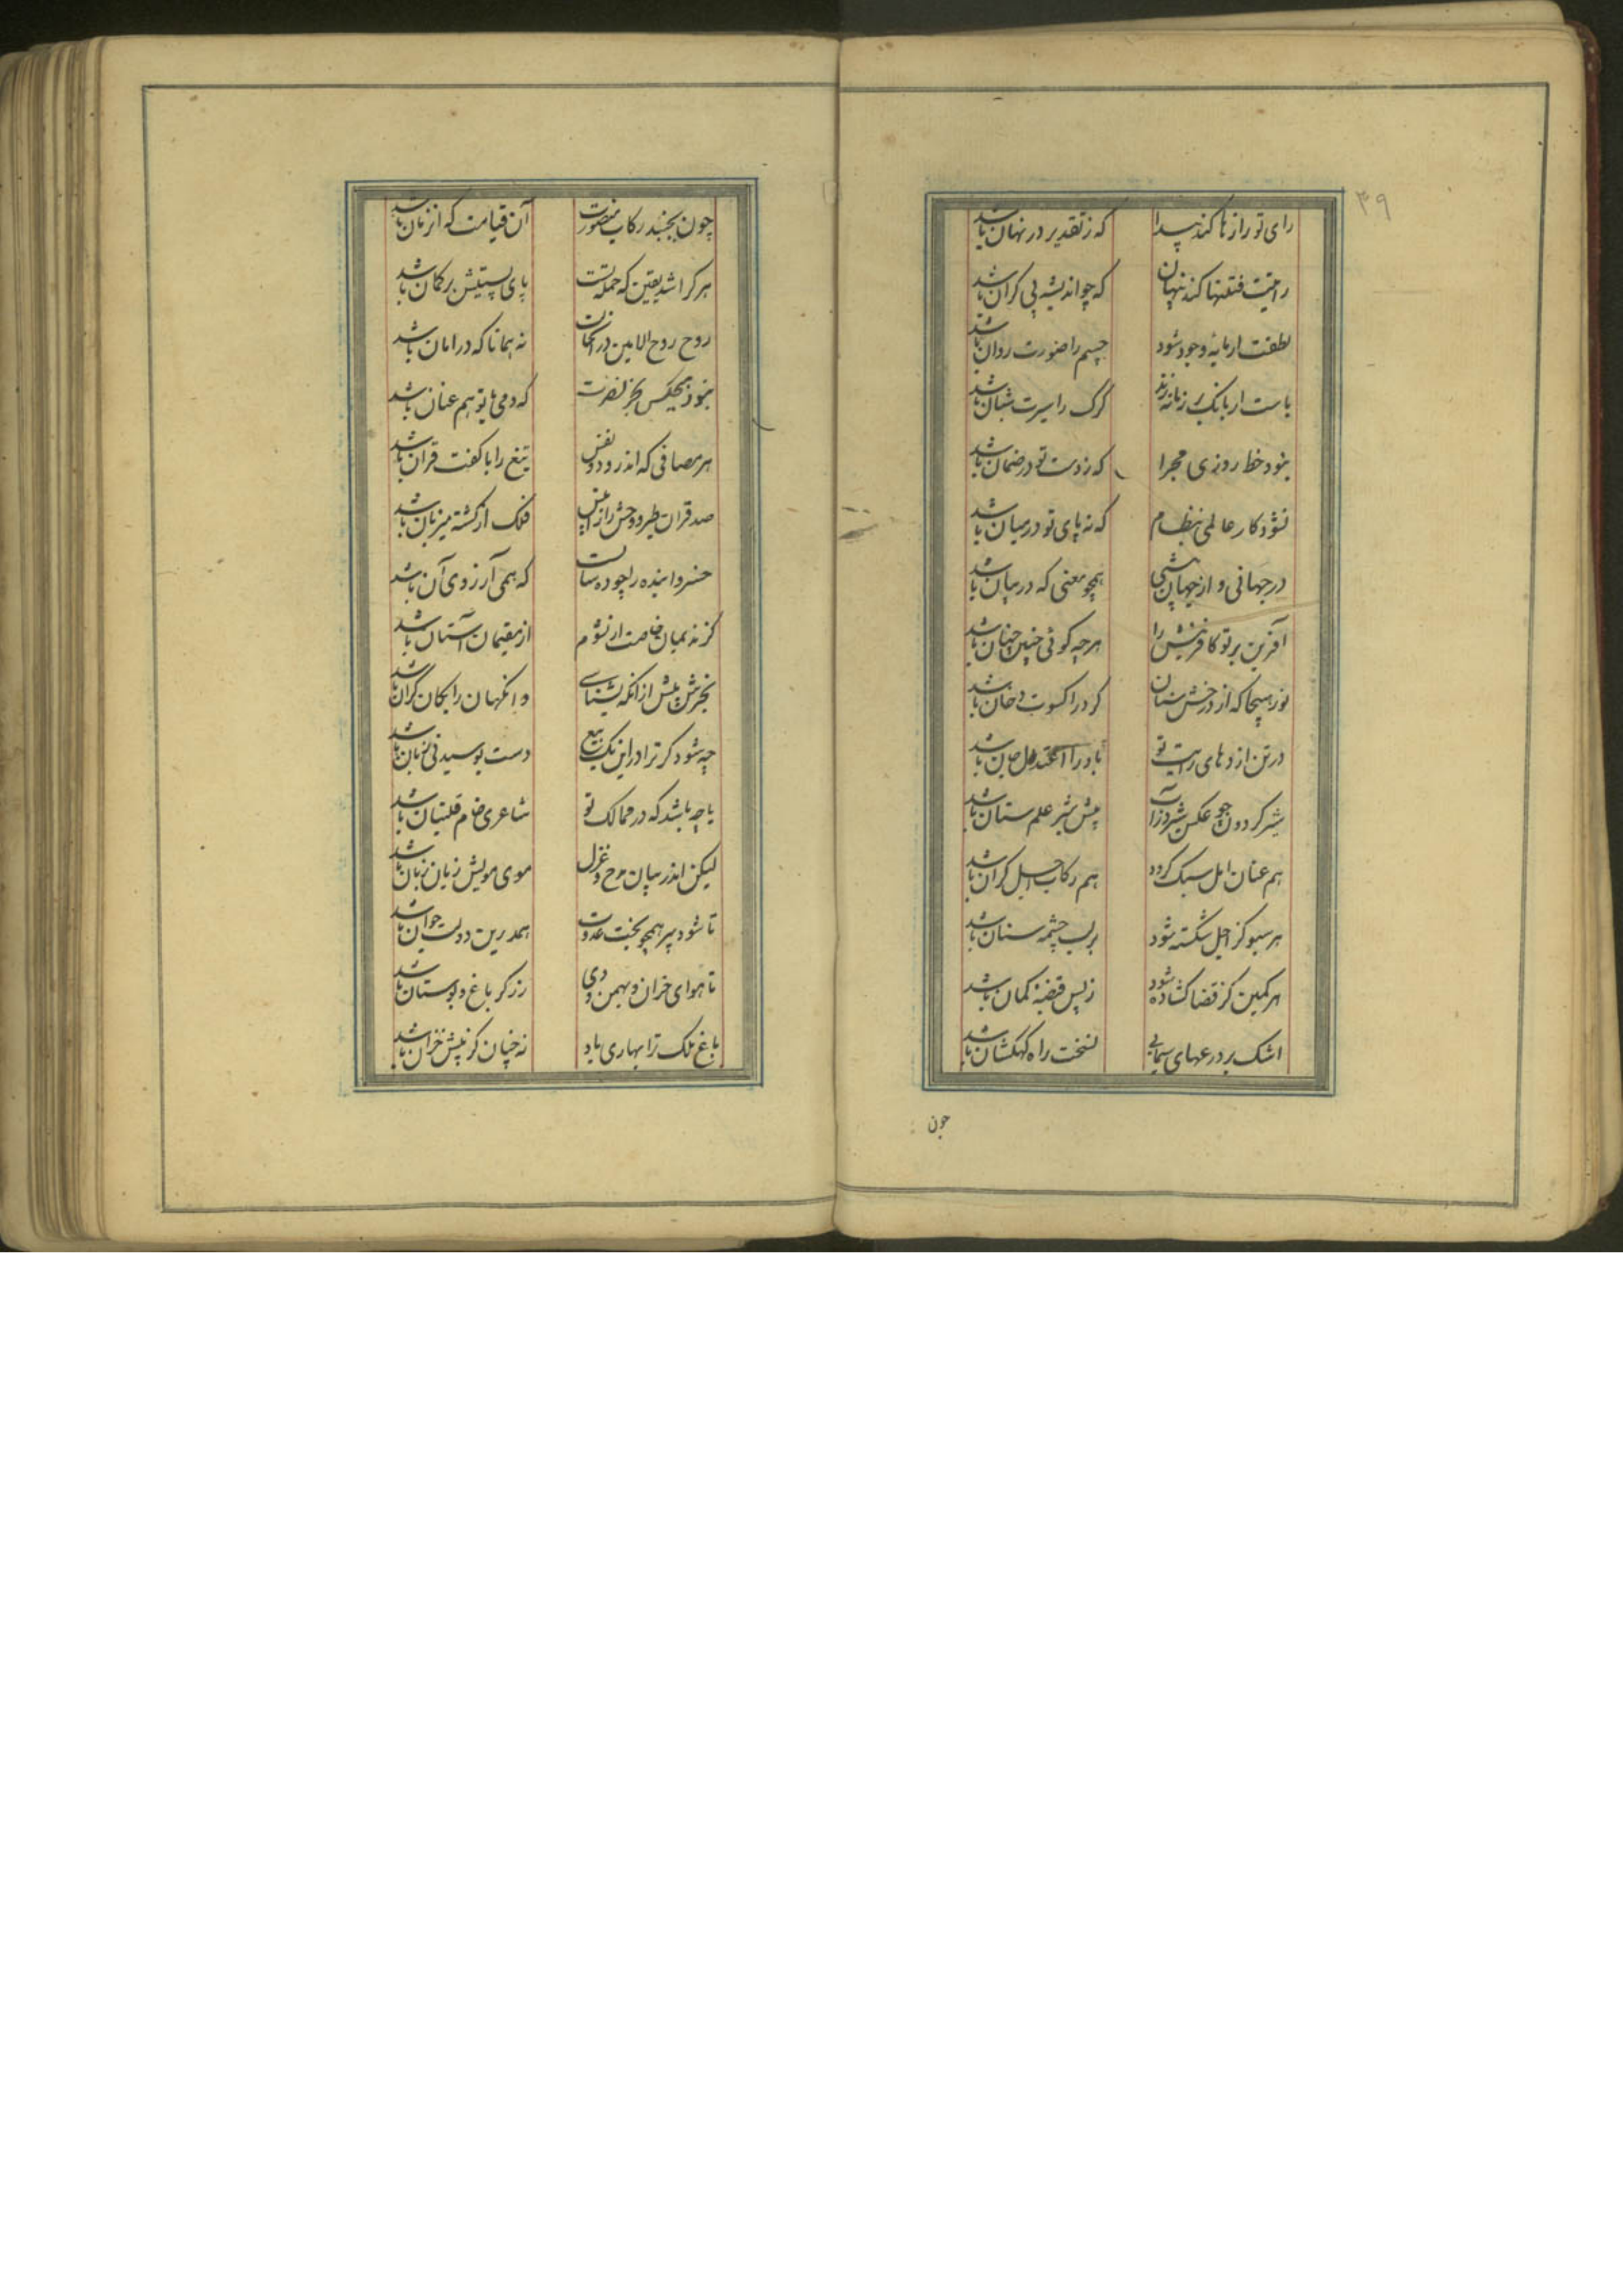 ۳۹
رای تو رازها کند پیدا که ز تقدیر در نهان باشد
رایتت فتنها کند پنهان که چو اندیشه بی کران باشد
لطفت ار مایهٔ وجود شود جسم را صورت روان باشد
باست ار بانک بر زمانه زند کرک را سیرت شبان باشد
نبود خط روزی مجرا که نه دست تو در ضمان باشد
نشود کار عالمی بنظام که نه پای تو در میان باشد
در جهانی و از جهان بیشی همچو معنی که در بیان باشد
آفرین بر تو کافرینش را هرچه کوئی چنین چنان باشد
روز هیجا که از درخش سنان کرد را کسوت دخان باشد
در تن اژدهای رایت تو باد را اعتدال جان باشد
شیر کردون چو عکس شیر در آب پیش شیر علم ستان باشد
هم عنان امل سبک کردد هم رکاب اجل کران باشد
هر سبو کز اجل شکسته شود بر لب چشمه سنان باشد
هر کمین کز قضا کشاده شود از پس قبضهٔ کمان باشد
اشک بر درعهای سیمابی نسخت راه کهکشان باشد
چون
چون بجنبد رکاب منصورت آن قیامت که آن زمان باشد
هر کرا شد یقین که حمله تست پای هستیش بر کمان باشد
روح روح الامین در آن ساعت نه همانا که در امان باشد
نبود هیچکس بجز نصرت که دمی با تو هم عنان باشد
هر مصافی که اندر و دو نفس تیغ را با کفت قران باشد
صد قران طیر و وحش را از پس فلک از کشته میزبان باشد
خسروا بنده را چو ده سالست که همی آرزوی آن باشد
کز ندیمان خاصت ار نشوم از مقیمان آستان باشد
بخرش پیش از آنکه بشناسی وانکهان رایکان کران باشد
چه شود کر ترا در این یک بیع دست بوسیدنی زیان باشد
یا چه باشد که در ممالک تو شاعری خام قلتبان باشد
لیکن اندر بیان مدح و غزل موی مویش زبان زبان باشد
تا شود پیر همچو بخت عدوت همدرین دولت جوان باشد
تا هوای خزان و بهمن و دی زرکر باغ و بوستان باشد
باغ ملک ترا بهاری باد نه چنان کز پیش خزان باشد